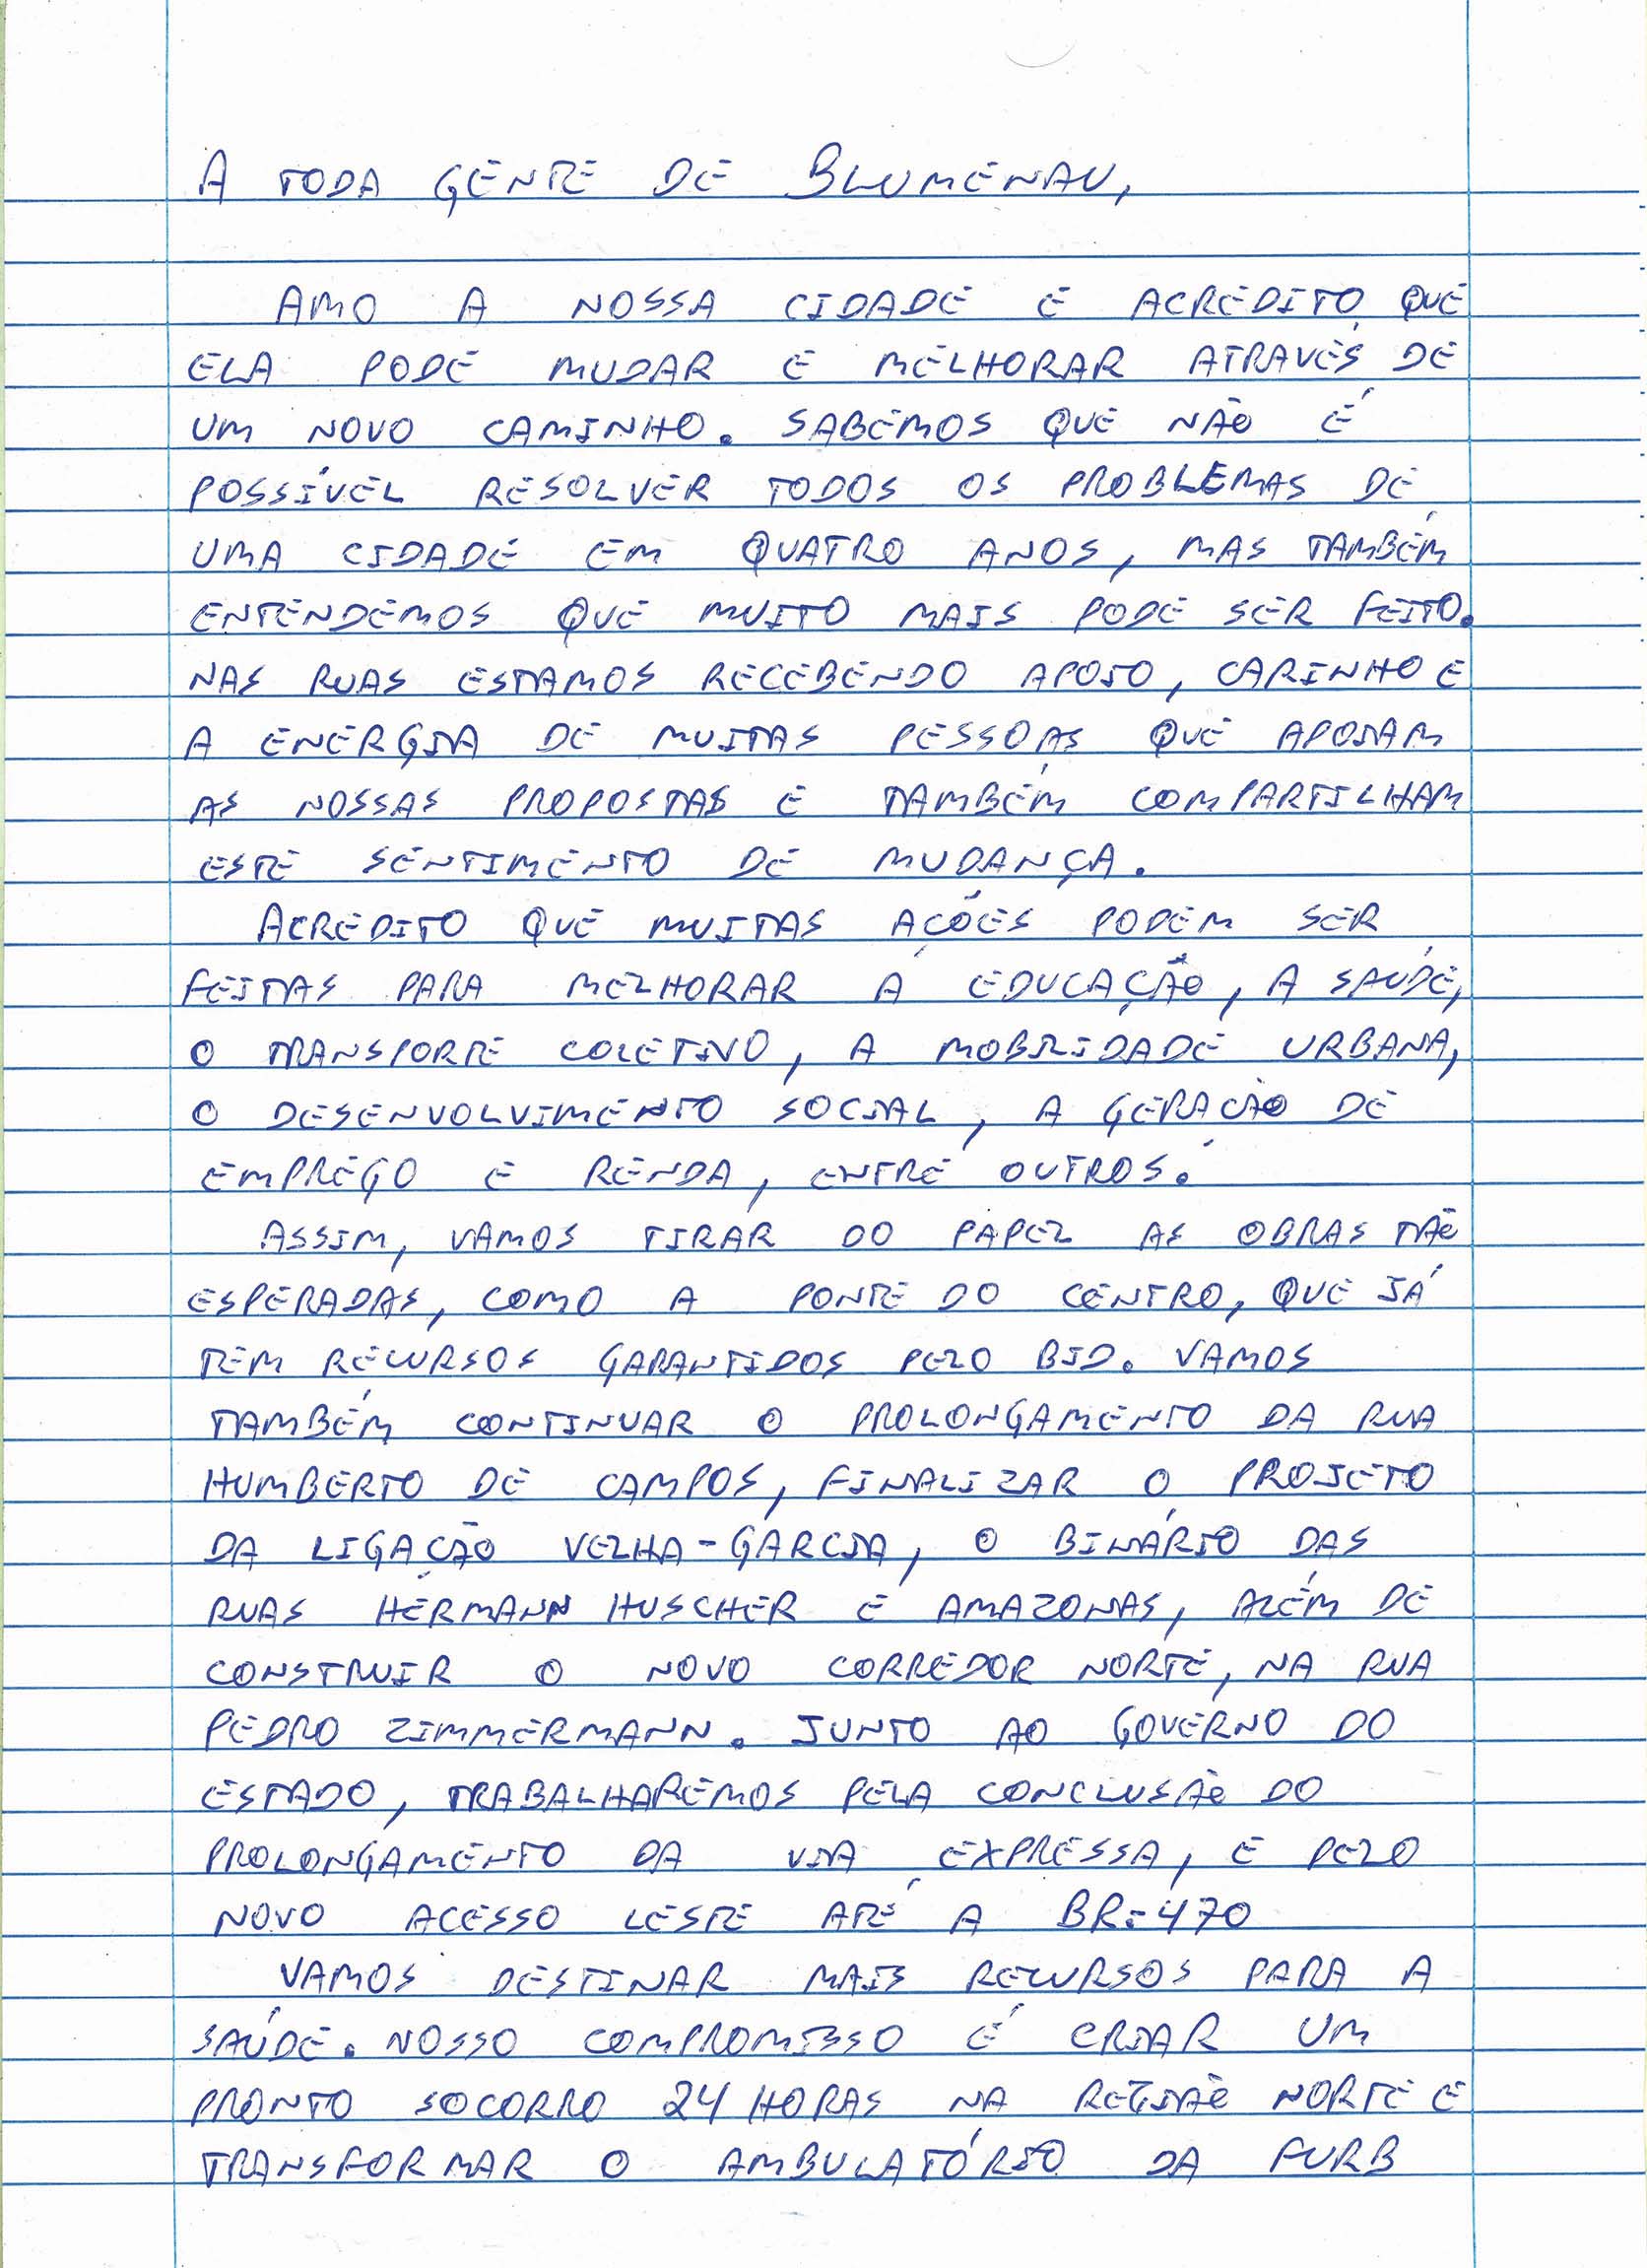 A TODA GENTE DE BLUMENAU,
AMO A NOSSA CIDADE E ACREDITO QUE
ELA PODE MUDAR E MELHORAR ATRAVÉS DE
UM NOVO CAMINHO. SABEMOS QUE NÃO É
POSSÍVEL RESOLVER TODOS OS PROBLEMAS DE
UMA CIDADE EM QUATRO ANOS, MAS TAMBÉM
ENTENDEMOS QUE MUITO MAIS PODE SER FEITO.
NAS RUAS ESTAMOS RECEBENDO APOIO, CARINHO E
A ENERGIA DE MUITAS PESSOAS QUE APOIAM
AS NOSSAS PROPOSTAS E TAMBÉM COMPARTILHAM
ESTE SENTIMENTO DE MUDANÇA.
ACREDITO QUE MUITAS AÇÕES PODEM SER
FEITAS PARA MELHORAR A EDUCAÇÃO, A SAÚDE,
O TRANSPORTE COLETIVO, A MOBILIDADE URBANA,
O DESENVOLVIMENTO SOCIAL, A GERAÇÃO DE
EMPREGO E RENDA, ENTRE OUTROS.
ASSIM, VAMOS TIRAR DO PAPEL AS OBRAS TÃO
ESPERADAS, COMO A PONTE DO CENTRO, QUE JÁ
TEM RECURSOS GARANTIDOS PELO BID. VAMOS
TAMBÉM CONTINUAR O PROLONGAMENTO DA RUA
HUMBERTO DE CAMPOS, FINALIZAR O PROJETO
DA LIGAÇÃO VELHA-GARCIA, O BINÁRIO DAS
RUAS HERMANN HUSCHER E AMAZONAS, ALÉM DE
CONSTRUIR O NOVO CORREDOR NORTE, NA RUA
PEDRO ZIMMERMANN. JUNTO AO GOVERNO DO
ESTADO, TRABALHAREMOS PELA CONCLUSÃO DO
PROLONGAMENTO DA VIA EXPRESSA, E PELO
NOVO ACESSO LESTE ATÉ A BR-470
VAMOS DESTINAR MAIS RECURSOS PARA A
SAÚDE. NOSSO COMPROMISSO É CRIAR UM
PRONTO SOCORRO 24 HORAS NA REGIÃO NORTE E
TRANSFORMAR O AMBULATÓRIO DA FURB